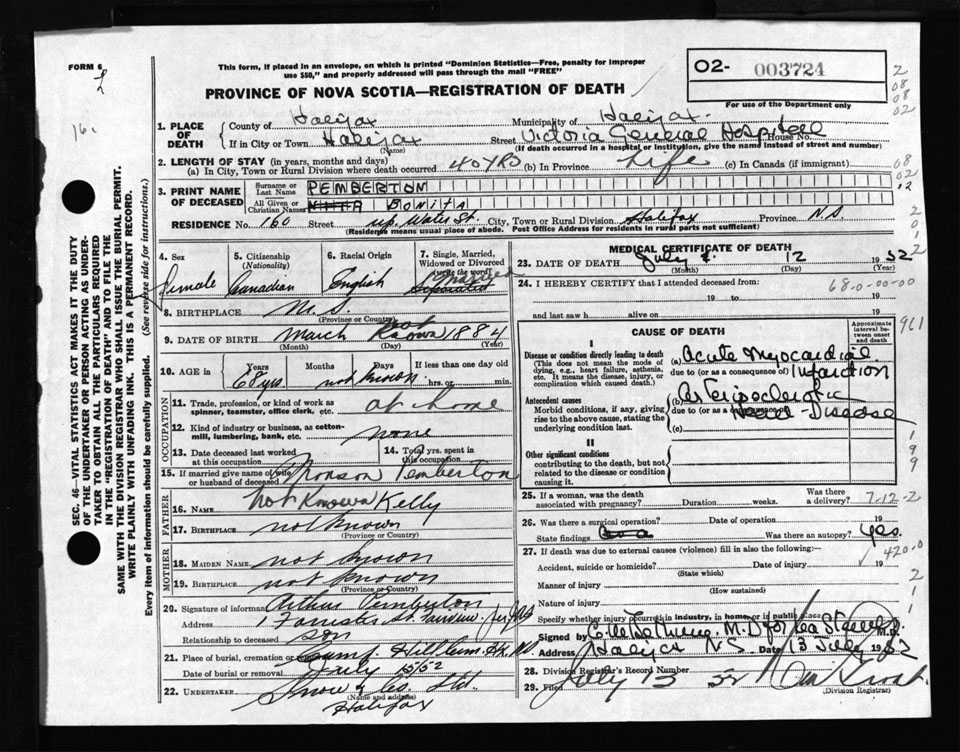 FORM 6
This form, if placed in an envelope, on which is printed "Dominion Statistics—Free, penalty for improper
use $50," and properly addressed will pass through the mail "FREE"
PROVINCE OF NOVA SCOTIA—REGISTRATION OF DEATH
02- 003724
For use of the Department only
16.
2
08
08
02
1. PLACE OF DEATH
County of Halifax Municipality of Halifax.
If in City or Town Halifax Street Victoria General Hospital House No.
(Name) (If death occurred in a hospital or institution, give the name instead of street and number)
2. LENGTH OF STAY (in years, months and days)
(a) In City, Town or Rural Division where death occurred 40 yrs (b) In Province Life (c) In Canada (if immigrant)
08
02
12
3. PRINT NAME OF DECEASED
Surname or Last Name PEMBERTON
All Given or Christian Names BONITA
RESIDENCE No. 160 Street up. Water St. City, Town or Rural Division Halifax Province N.S.
(Residence means usual place of abode. Post Office Address for residents in rural parts not sufficient)
SEC. 46—VITAL STATISTICS ACT MAKES IT THE DUTY
OF THE UNDERTAKER OR PERSON ACTING AS UNDER-
TAKER TO OBTAIN ALL THE PARTICULARS REQUIRED
IN THE "REGISTRATION OF DEATH" AND TO FILE THE
SAME WITH THE DIVISION REGISTRAR WHO SHALL ISSUE THE BURIAL PERMIT.
WRITE PLAINLY WITH UNFADING INK. THIS IS A PERMANENT RECORD.
Every item of information should be carefully supplied. (See reverse side for instructions.)
4. Sex
female
5. Citizenship
(Nationality)
Canadian
6. Racial Origin
English
7. Single, Married,
Widowed or Divorced
(write the word)
Married
Separated
8. BIRTHPLACE N.S.
(Province or Country)
9. DATE OF BIRTH March not known 1884
(Month) (Day) (Year)
10. AGE in Years Months Days If less than one day
68 yrs. not known hrs. or min.
OCCUPATION
11. Trade, profession, or kind of work as
spinner, teamster, office clerk, etc. at home
12. Kind of industry or business, as cotton-
mill, lumbering, bank, etc. none
13. Date deceased last worked
at this occupation
14. Total yrs. spent in
this occupation
15. If married give name of wife
or husband of deceased Monson Pemberton
FATHER
16. NAME not known Kelly
17. BIRTHPLACE not known
(Province or Country)
MOTHER
18. MAIDEN NAME not known
19. BIRTHPLACE not known
(Province or Country)
20. Signature of informant Arthur Pemberton
Address 1 Forrister St. Fairview
Relationship to deceased son
21. Place of burial, cremation or Camp Hill Cem. Hx. N.S.
Date of burial or removal July 15/52
22. UNDERTAKER Snow & Co. Ltd.
(Name and address)
Halifax
MEDICAL CERTIFICATE OF DEATH
23. DATE OF DEATH July 12 1952
(Month) (Day) (Year)
24. I HEREBY CERTIFY that I attended deceased from:
68-0-00-00
19 to 19
and last saw h alive on 19
CAUSE OF DEATH
Approximate
interval be-
tween onset
and death
I
Disease or condition directly leading to death
(This does not mean the mode of
dying, e.g., heart failure, asthenia,
etc. It means the disease, injury, or
complication which caused death.)
(a) Acute Myocardial
due to (or as a consequence of) Infarction
Antecedent causes
Morbid conditions, if any, giving
rise to the above cause, stating the
underlying condition last.
(b) Arteriosclerotic
due to (or as a consequence of) Heart Disease
(c)
II
Other significant conditions
contributing to the death, but not
related to the disease or condition
causing it.
1
9
9
25. If a woman, was the death
associated with pregnancy? Duration weeks. Was there a delivery? 7-12-2
26. Was there a surgical operation? Date of operation 19
State findings Was there an autopsy? Yes.
27. If death was due to external causes (violence) fill in also the following:—
420.0
Accident, suicide or homicide? Date of injury 19
(State which)
Manner of injury
(How sustained)
Nature of injury
Specify whether injury occurred in industry, in home, or in public
Signed by M.D. for M.D.
Address Halifax N.S. Date 13 July 1952
28. Division Registrar's Record Number
29. Filed July 15 52
(Division Registrar)